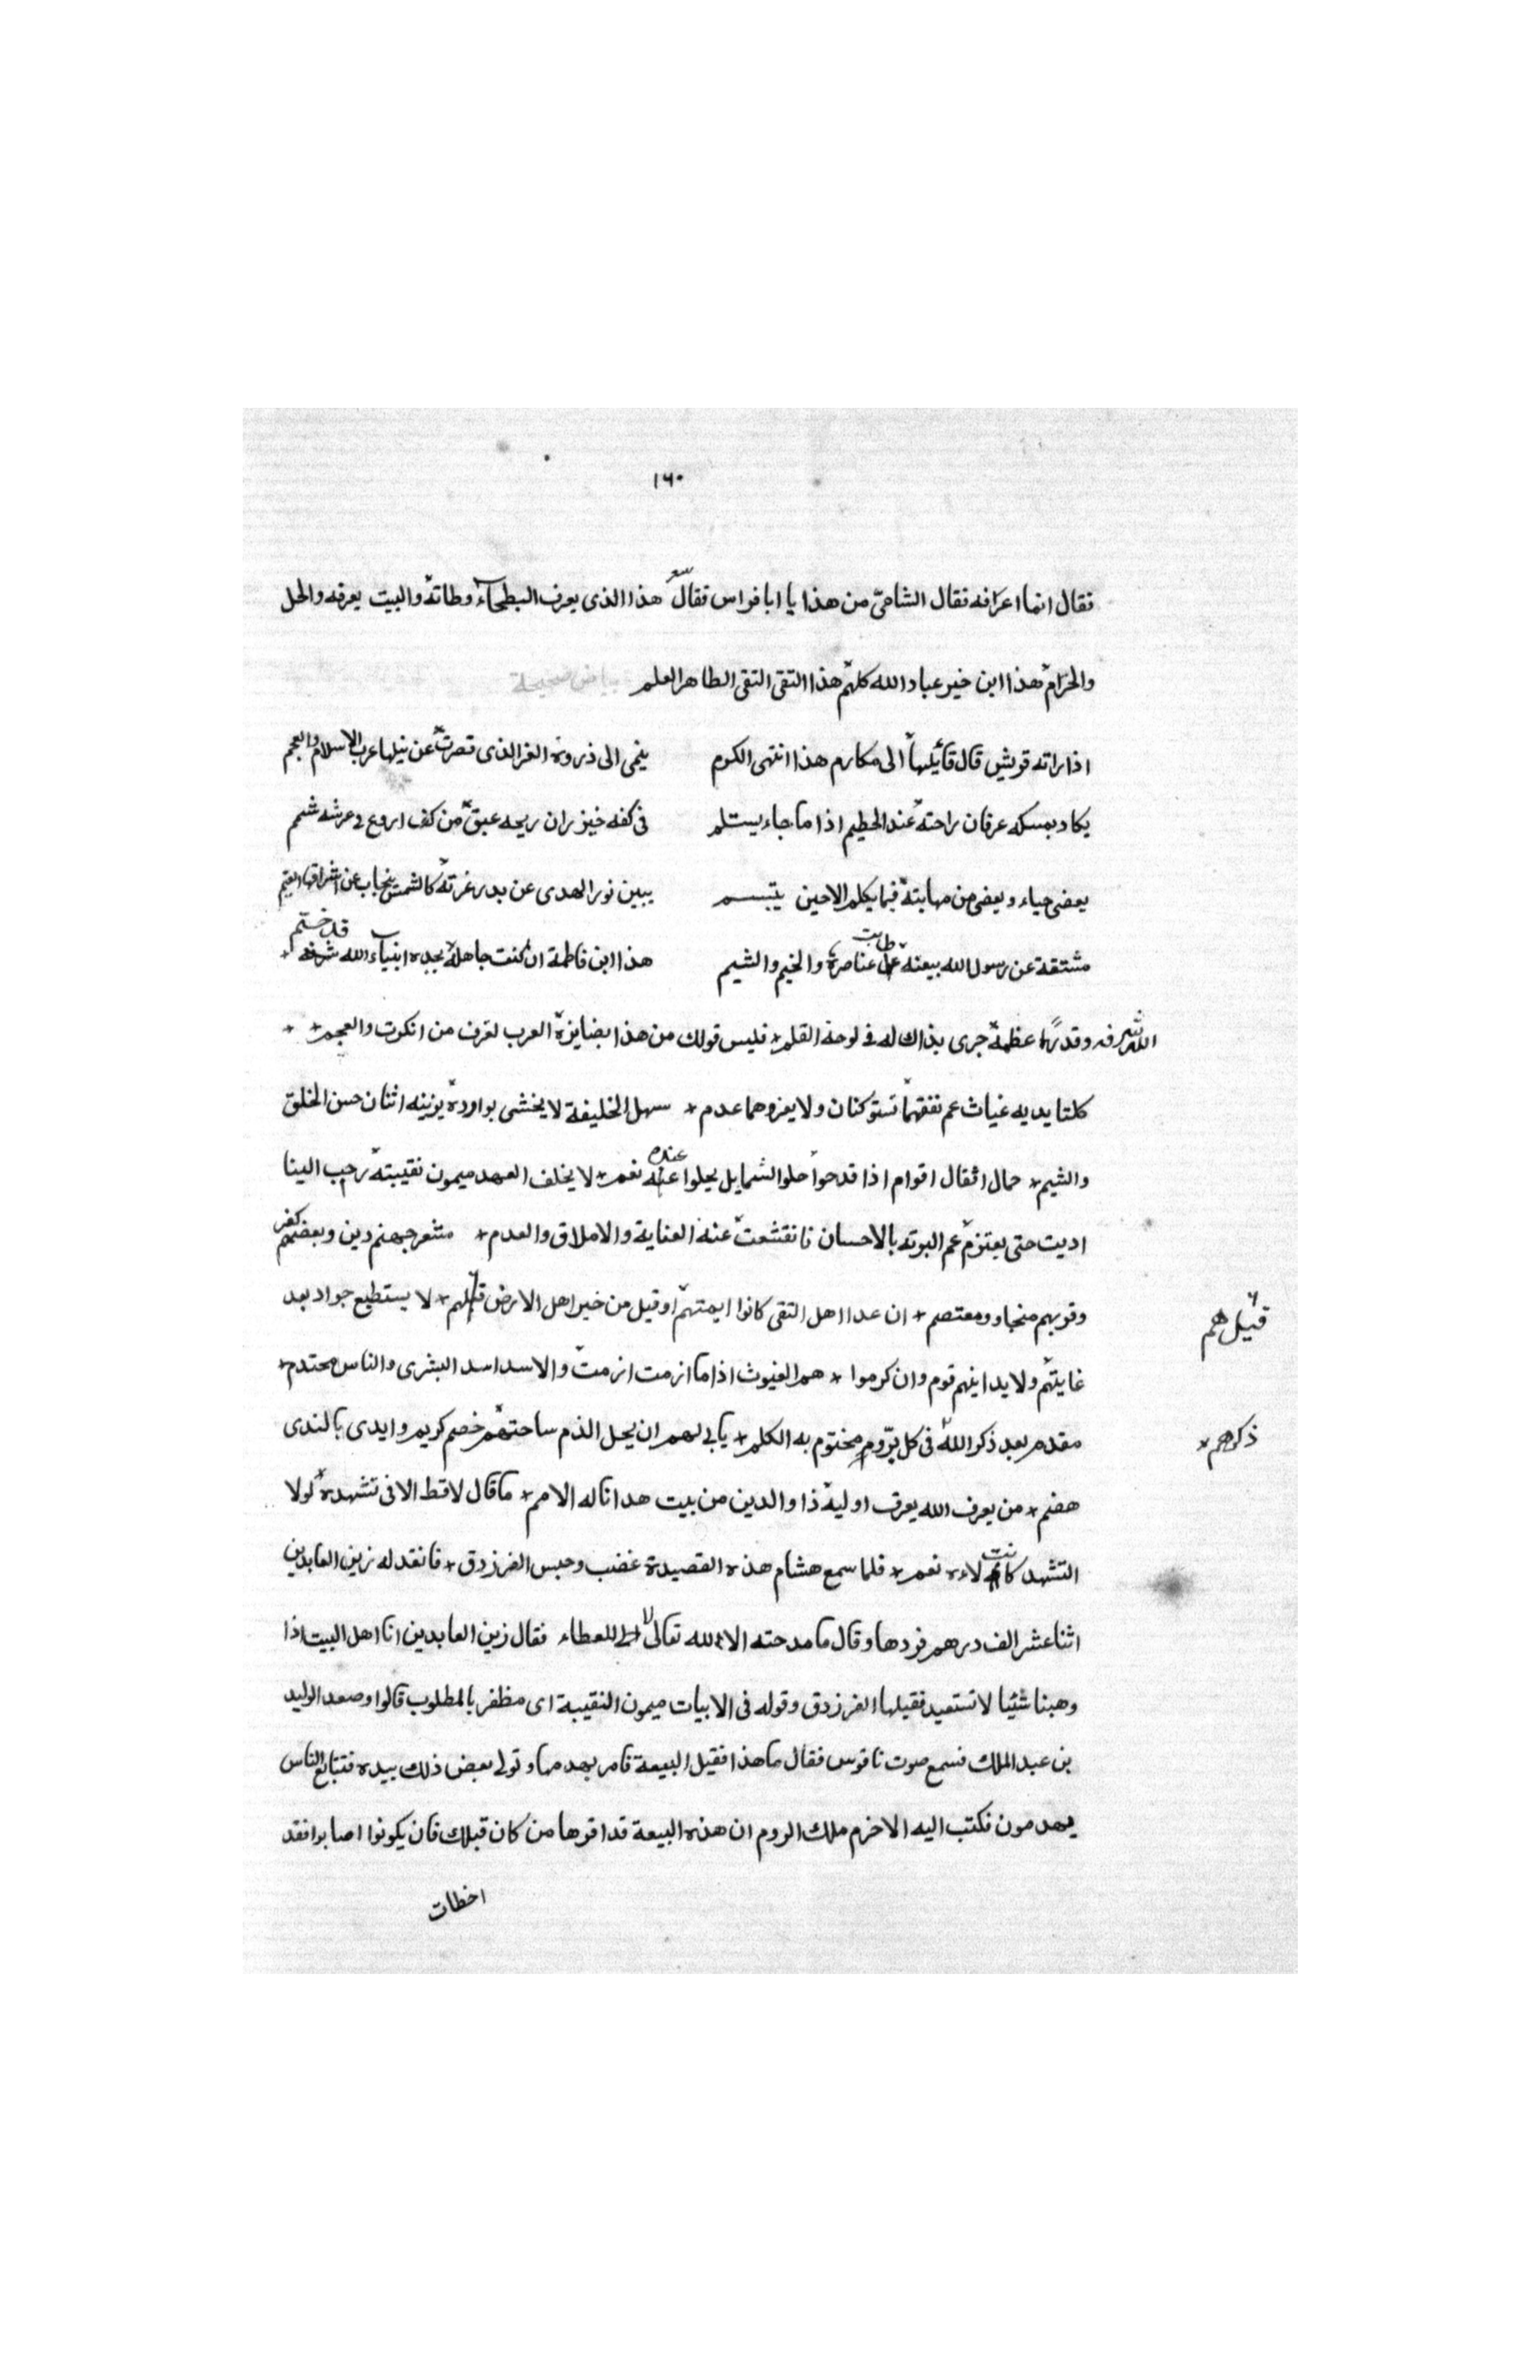 ١٦٠
فقال انما اعرافه فقال الشامى من هذا يا ابا فراس فقال شعر هذا الذى يعرف البطحاء وطاته والبيت يعرفه والحل
والحرام هذا ابن خير عباد الله كلهم هذا التقى النقى الطاهر العلم بياض صحيحة
اذا راته قريش قال قائلها الى مكارم هذا انتهى الكرم ينمى الى ذروة العز الذى قصرت عن نيلها عرب الاسلام والعجم
يكاد يمسكه عرفان راحته عند الحطيم اذا ما جاء يستلم فى كفه خيزران ريحه عبق من كف اروع فى عرشه شمم
يغضى حياء ويغضى من مهابته فما يكلم الا حين يتبسم يبين نور الهدى عن بدر غرته كالشمس ينجاب عن اشراقها القتم
مشتقة عن رسول الله بيعته طابت عناصره والخيم والشيم هذا ابن فاطمة ان كنت جاهله بجده انبياء الله قد ختم
الله شرفه وقدرا عظمه جرى بذاك له فى لوحة القلم فليس قولك من هذا بضايره العرب تعرف من انكرت والعجم
كلتا يديه غياث عم نفعهما تستوكفان ولا يعروهما عدم سهل الخليفة لا يخشى بوادره يزينه اثنان حسن الخلق
والشيم حمال اثقال اقوام اذا قدحوا حلو الشمايل يحلوا عنده نعم لا يخلف العهد ميمون نقيبته رحب الينا
اديت حتى يعتزم عم البوته بالاحسان فانقشعت عنه العناية والاملاق والعدم متعر جبهنم دين وبغضهم كفر
وقربهم منجاو ومعتصم ان عدا اهل التقى كانوا ايمتهم او قيل من خير اهل الارض قيل هم لا يستطيع جواد بعد
غايتهم ولا يدانيهم قوم وان كرموا هم الغيوث اذا ما ازمت ازمت والاسد اسد البشرى والناس محتدم
مقدم بعد ذكر الله ذكرهم فى كل بر ومختوم به الكلم يابى لهم ان يحل الذم ساحتهم خصم كريم وايدى بالندى
هضم من يعرف الله يعرف اوليه ذا والدين من بيت هدا ناله الامم ما قال لا قط الا فى تشهده لولا
التشهد كانت لاءه نعم فلما سمع هشام هذه القصيدة غضب وحبس الفرزدق فانقد له زين العابدين
اثنا عشر الف درهم فردها وقال ما مدحته الا لله تعالى لا للعطاء فقال زين العابدين انا اهل البيت اذا
وهبنا شيئا لا نستعيد فقبلها الفرزدق وقوله فى الابيات ميمون النقيبة اى مظفر بالمطلوب قالوا وصعد الوليد
بن عبد الملك فسمع صوت ناقوس فقال ما هذا فقيل البيعة فامر بهدمها وتولى بعض ذلك بيده فتتابع الناس
يهدمون فكتب اليه الاخرم ملك الروم ان هذه البيعة قد اقرها من كان قبلك فان يكونوا اصابوا فقد
اخطات
قيل هم
ذكرهم